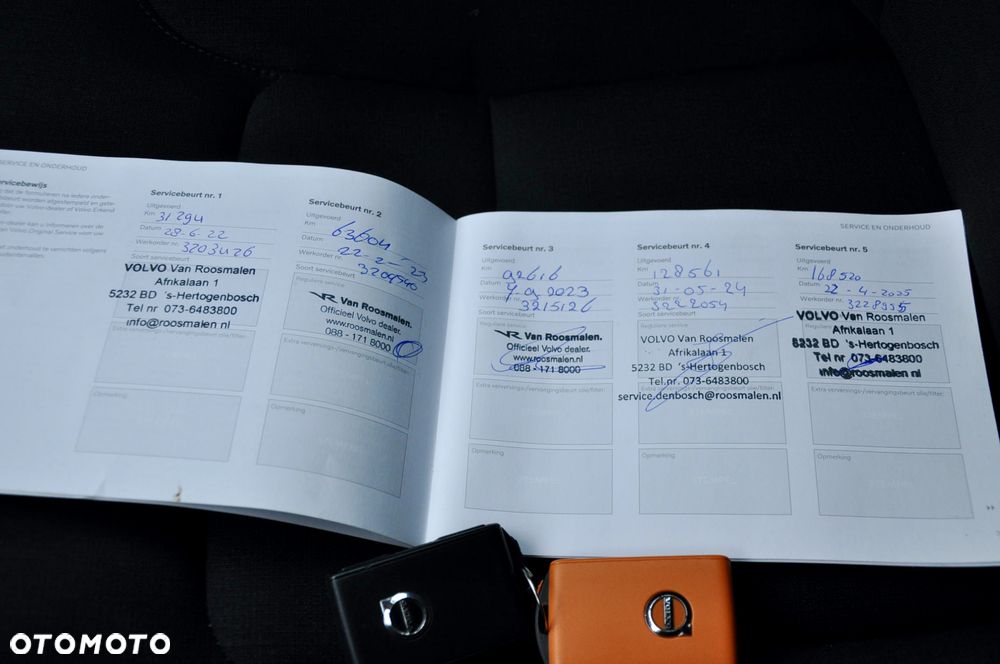 SERVICE EN ONDERHOUD
Servicebeurt nr. 1
Uitgevoerd
Km 31294
Datum 28-6-22
Werkorder nr. 3203426
Soort servicebeurt
VOLVO Van Roosmalen
Afrikalaan 1
5232 BD 's-Hertogenbosch
Tel nr 073-6483800
info@roosmalen nl
Extra verversings-/vervangingsbeurt olie/filter:
Opmerking
Servicebeurt nr. 2
Uitgevoerd
Km 63604
Datum 22-2-23
Werkorder nr. 3209540
Soort servicebeurt
Reguliere service
Van Roosmalen.
Officieel Volvo dealer.
www.roosmalen.nl
088 - 171 8000
Extra verversings-/vervangingsbeurt olie/filter:
Opmerking
SERVICE EN ONDERHOUD
Servicebeurt nr. 3
Uitgevoerd
Km 92616
Datum 7-9 2023
Werkorder nr. 3215126
Soort servicebeurt
Reguliere service
Van Roosmalen.
Officieel Volvo dealer.
www.roosmalen.nl
088 - 171 8000
Extra verversings-/vervangingsbeurt olie/filter:
Opmerking
Servicebeurt nr. 4
Uitgevoerd
Km 128561
Datum 31-05-24
Werkorder nr. 3222054
Soort servicebeurt
Reguliere service
VOLVO Van Roosmalen
Afrikalaan 1
5232 BD 's-Hertogenbosch
Tel.nr. 073-6483800
service.denbosch@roosmalen.nl
Extra verversings-/vervangingsbeurt olie/filter:
Opmerking
Servicebeurt nr. 5
Uitgevoerd
Km 168520
Datum 22-4-2025
Werkorder nr. 3228935
VOLVO Van Roosmalen
Afrikalaan 1
5232 BD 's-Hertogenbosch
Tel nr 073-6483800
info@roosmalen nl
Extra verversings-/vervangingsbeurt olie/filter:
Opmerking
VOLVO
OTOMOTO